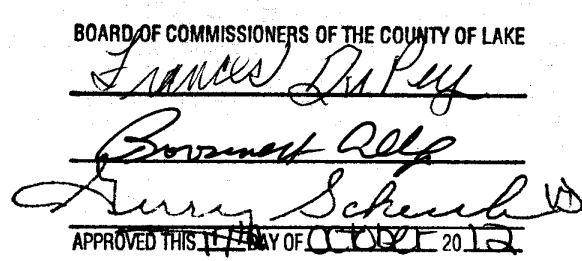 BOARD OF COMMISSIONERS OF THE COUNTY OF LAKE
Frances DuPey
Gerry Scheub
APPROVED THIS DAY OF OCTOBER 2012